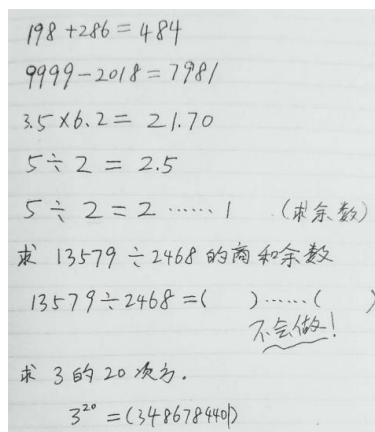 198+286=484
9999-2018=7981
3.5×6.2=21.70
5÷2=2.5
5÷2=2……1 (求余数)
求 13579÷2468的商和余数
13579÷2468=( )……( )
不会做!
求 3的20次方.
3²⁰=(3486784401)